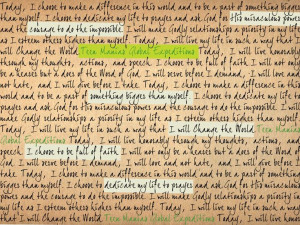 Today, I choose to make a difference in this world and to be a part of something bigger
than myself. I choose to dedicate my life to prayer and ask God for this miraculous power
and the courage to do the impossible. I will make Godly relationships a priority in my life
as I esteem others higher than myself. Today, I will live my life in such a way that I
will Change the World. Teen Mania's Global Expeditions Today, I will live honorably
through my thoughts, actions, and speech. I choose to be full of faith. I will not only
be a hearer but a doer of the Word of God. I will serve before I demand, I will love and
not hate, and I will give before I take. Today, I choose to make a difference in this
world and to be a part of something bigger than myself. I choose to dedicate my life to
prayer and ask God for this miraculous power and the courage to do the impossible. I will
make Godly relationships a priority in my life as I esteem others higher than myself.
Today, I will live my life in such a way that I will Change the World. Teen Mania's
Global Expeditions Today, I will live honorably through my thoughts, actions,
I choose to be full of faith. I will not only be a hearer but a doer of the Word
of God. I will serve before I demand, I will love and not hate, and I will give before I
take. Today, I choose to make a difference in this world and to be a part of something
bigger than myself. I choose to dedicate my life to prayer and ask God for this miraculous
power and the courage to do the impossible. I will make Godly relationships a priority in my
life as I esteem others higher than myself. Today, I will live my life in such a way that
I will Change the World. Teen Mania's Global Expeditions Today, I will live